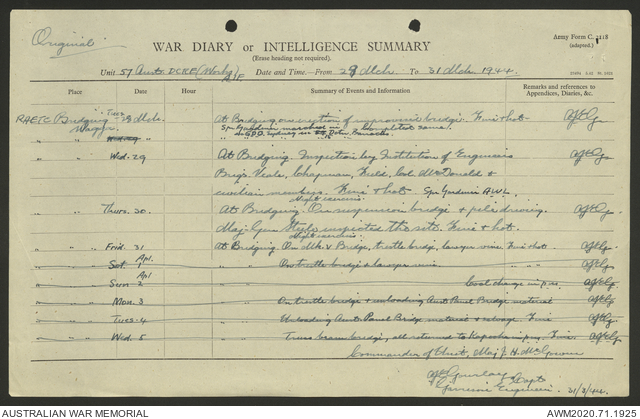 Original
Army Form C. 2118
(adapted.)
WAR DIARY or INTELLIGENCE SUMMARY
(Erase heading not required).
Unit 57 Aust. DCRE (Works) AIF Date and Time—From 28 Mch. To 31 Mch. 1944.
Place Date Hour Summary of Events and Information Remarks and references to Appendices, Diaries, &c.
RAETC Bridging Tues. 28 Mch. At Bridging on erection of improvised bridge. Fine & hot.
Wagga. Spr Gardiner
Wed. 29 At Bridging. Inspection by Institution of Engineers
Brigs. Veale, Chapman, Field, Col. McDonald &
civilian members. Fine & hot. Spr Gardiner A.W.L.
Night exercise.
" " Thurs. 30 At Bridging. On suspension bridge & pile driving.
Maj. Gen. inspected the site. Fine & hot.
Night exercise.
" " Frid. 31 At Bridging On Mk V Bridge, trestle bridge, Fine & hot.
" " Sat. Apl. 1 On trestle bridge &
" " Sun. Apl 2 Cool change in p.m.
" " Mon. 3 On trestle bridge & unloading Aust Panel Bridge material
" " Tues. 4 Unloading Aust. Panel Bridge material & salvage. Fine
" " Wed. 5 Truss beam bridge, all returned to Kapooka in p.m. Fine.
Commander of Unit, Maj. J. H. McGowan
Capt
Garrison Engineer. 31/3/44.
AUSTRALIAN WAR MEMORIAL AWM2020.71.1925